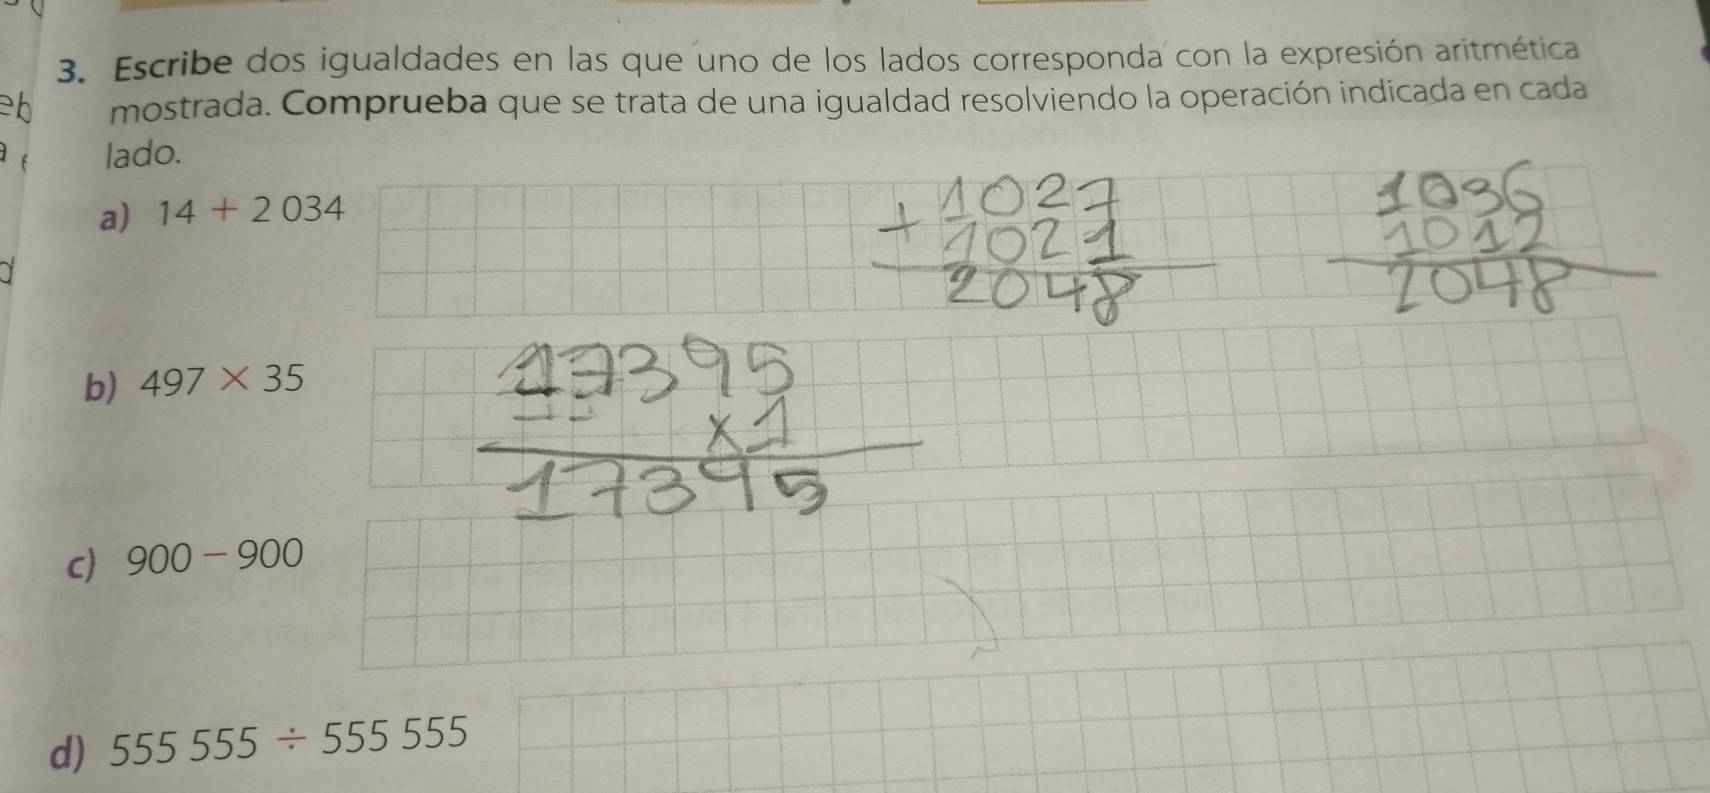 3. Escribe dos igualdades en las que uno de los lados corresponda con la expresión aritmética
mostrada. Comprueba que se trata de una igualdad resolviendo la operación indicada en cada
lado.
a) 14 + 2 034
+ 1027
1021
2048
1036
1012
2048
b) 497 × 35
17395
×1
17395
c) 900 − 900
d) 555 555 ÷ 555 555